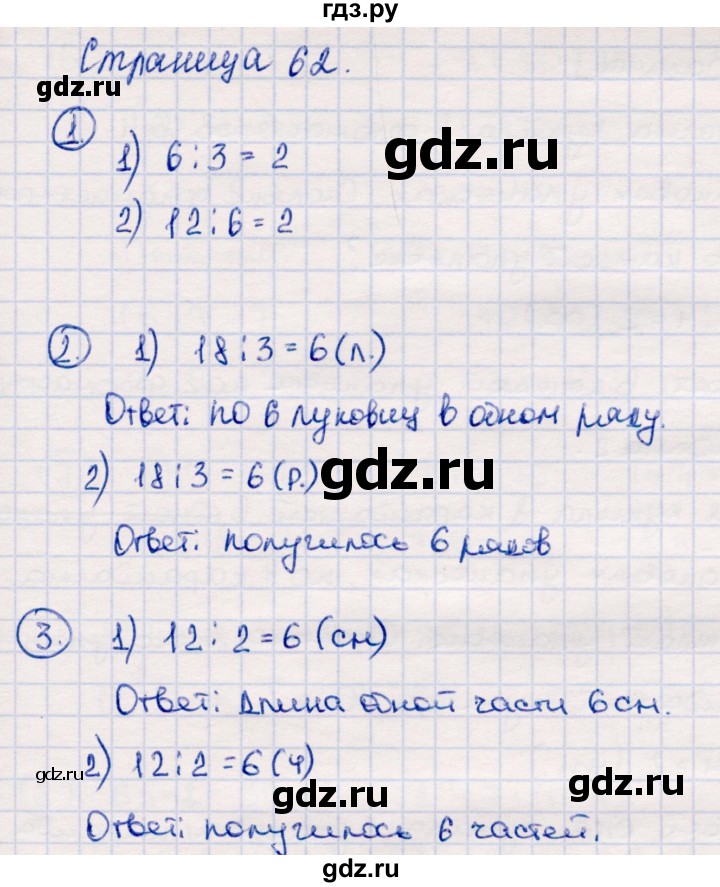 гдз.ру
Страница 62.
gdz.ru
1
1) 6:3=2
gdz.ru
2) 12:6=2
2. 1) 18:3=6(л.)
Ответ: по 6 луковиц в одном ряду.
2) 18:3=6(р.)
gdz.ru
Ответ: получилось 6 рядов
3. 1) 12:2=6(см)
Ответ: длина одной части 6см.
gdz.ru
2) 12:2=6(ч)
gdz.ru
gdz.ru
Ответ: получилось 6 частей.
gdz.ru